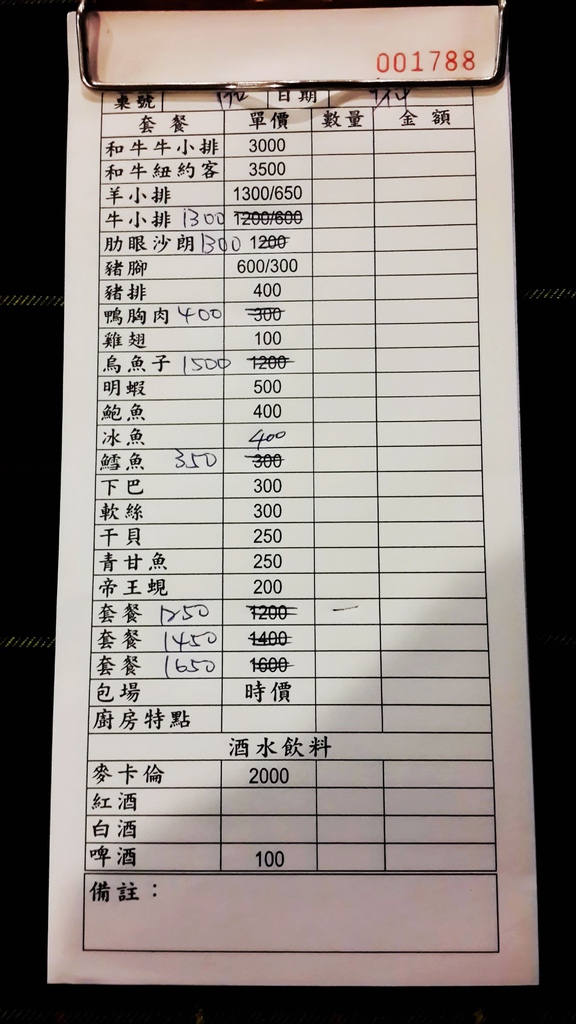 001788
桌號 日期
套餐 單價 數量 金額
和牛牛小排 3000
和牛紐約客 3500
羊小排 1300/650
牛小排 1300 1200/600
肋眼沙朗 1300 1200
豬腳 600/300
豬排 400
鴨胸肉 400 300
雞翅 100
烏魚子 1500 1200
明蝦 500
鮑魚 400
冰魚 400
鱈魚 350 300
下巴 300
軟絲 300
干貝 250
青甘魚 250
帝王蜆 200
套餐 1250 1200 一
套餐 1450 1400
套餐 1650 1600
包場 時價
廚房特點
酒水飲料
麥卡倫 2000
紅酒
白酒
啤酒 100
備註：